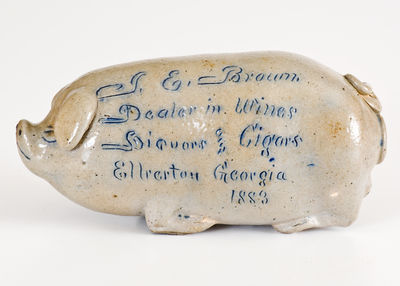 J. E. Brown
Dealer in Wines
Liquors & Cigars
Elberton Georgia
1883